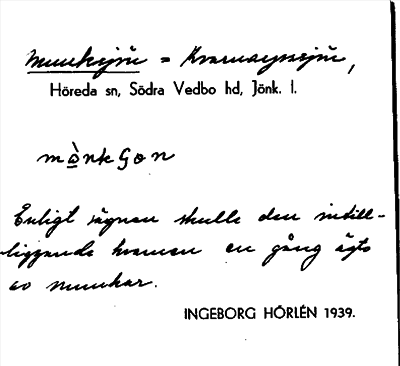 Munksjön = Kvarnarpssjön,
Höreda sn, Södra Vedbo hd, Jönk. l.
mònkʃɔn
Enligt sägnen skulle den intill-
liggande kvarnen en gång ägts
av munkar.
INGEBORG HÖRLÉN 1939.